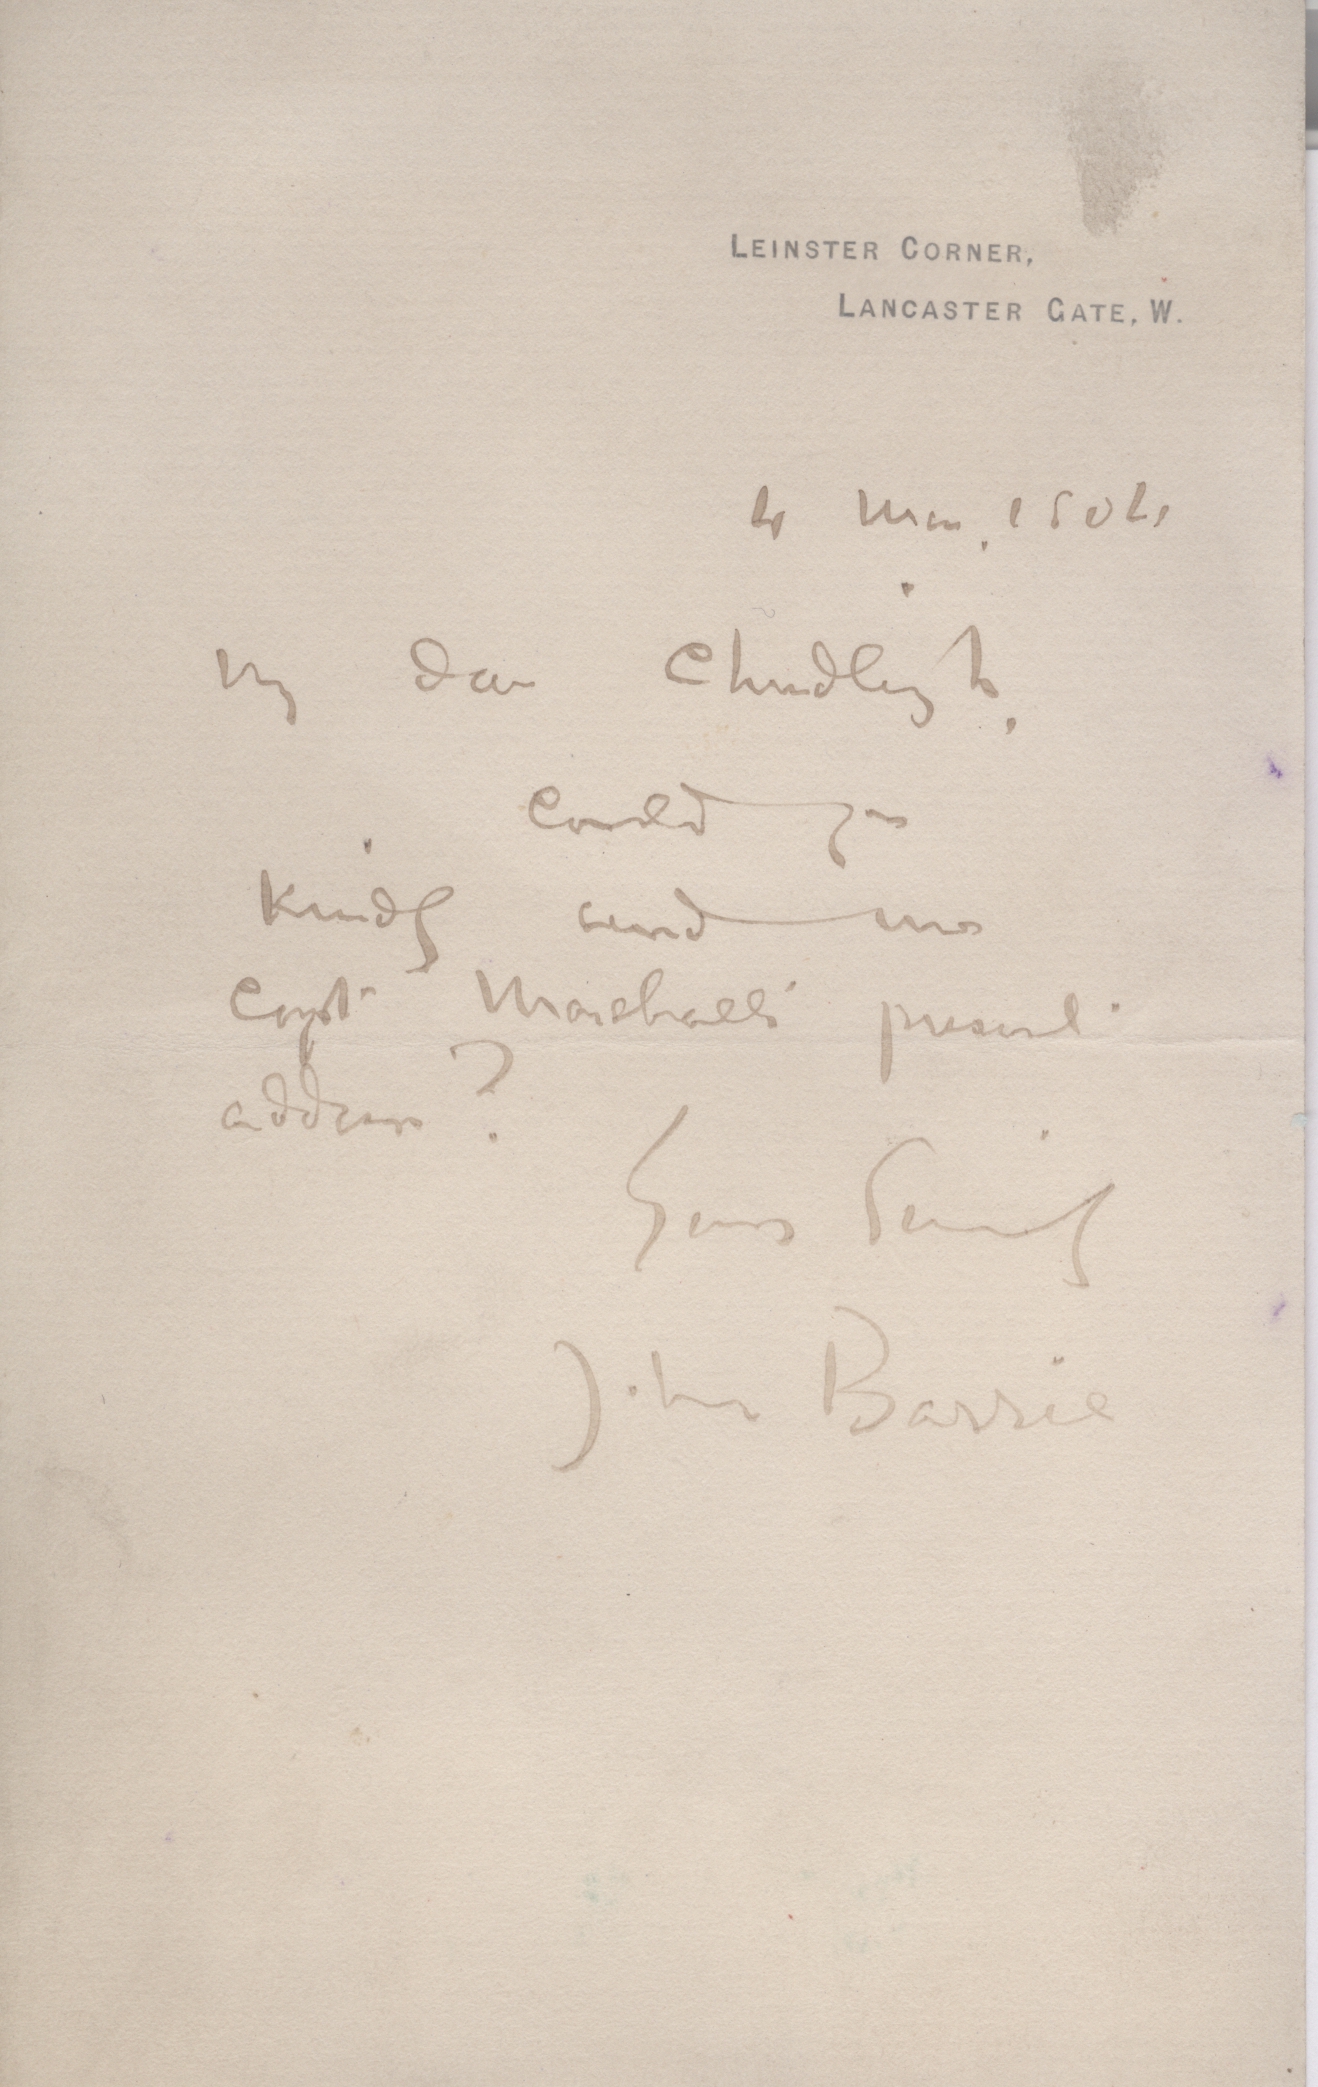 LEINSTER CORNER,
LANCASTER GATE, W.
4 Mar. 1904
My dear Chudleigh,
Could you
kindly send me
Capt Marshall's present
address?
Yours Sincerely
J. M. Barrie